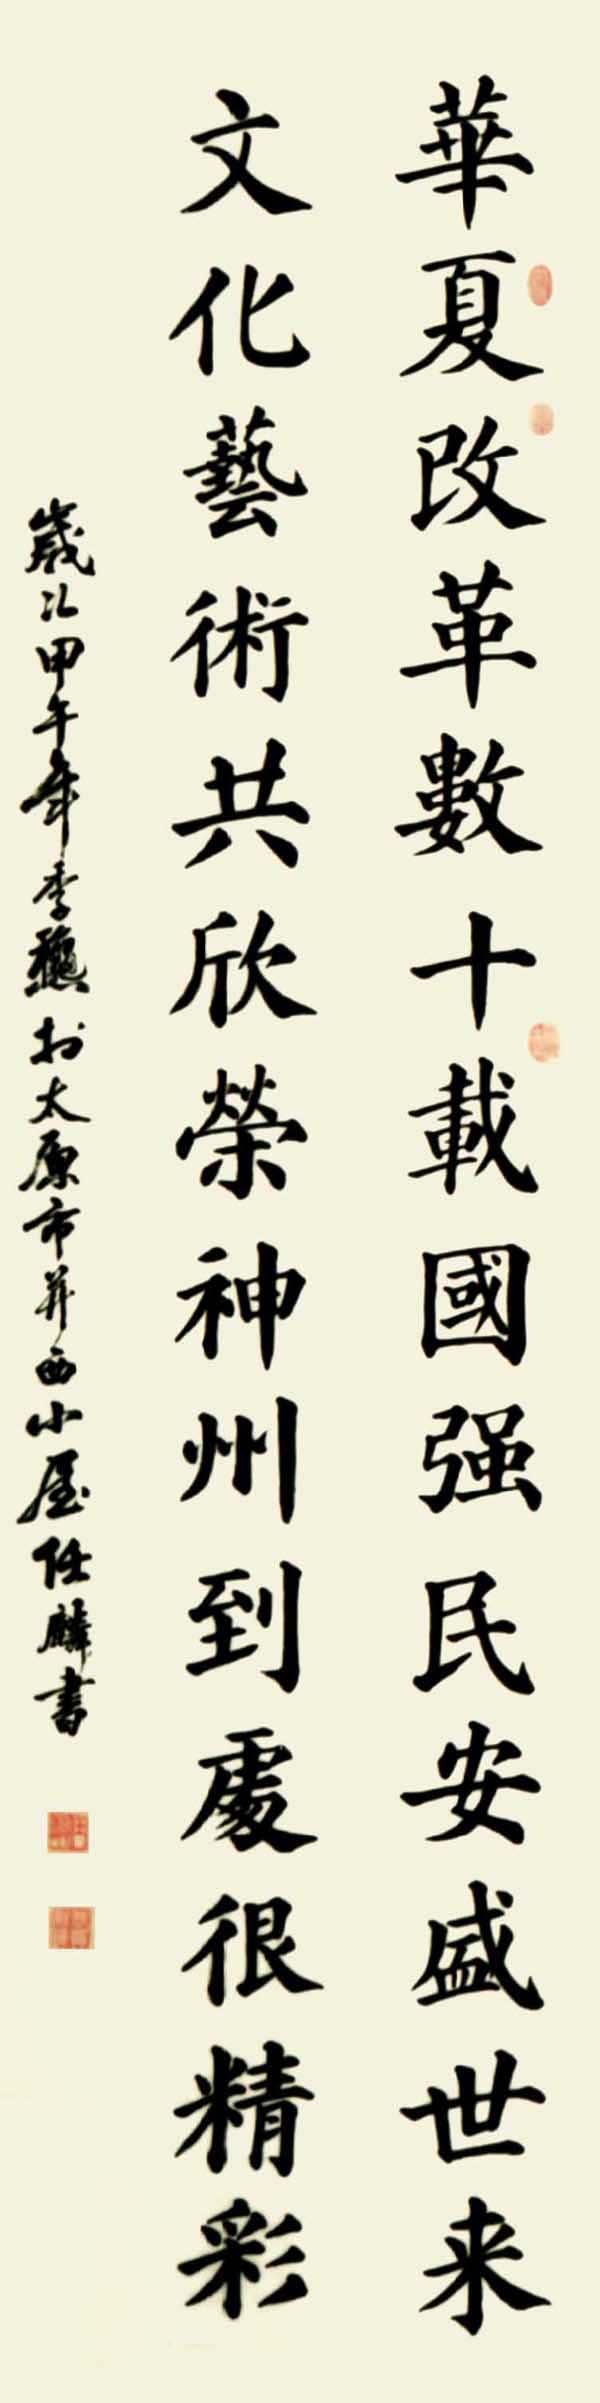 華夏改革數十載國强民安盛世来
文化藝術共欣榮神州到處很精彩
歲次甲午年季龝於太原市并西小屋任麟書